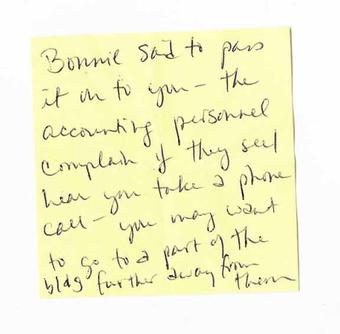 Bonnie said to pass
it on to you – the
accounting personnel
complain if they see/
hear you take a phone
call – you may want
to go to a part of the
bldg further away from
them